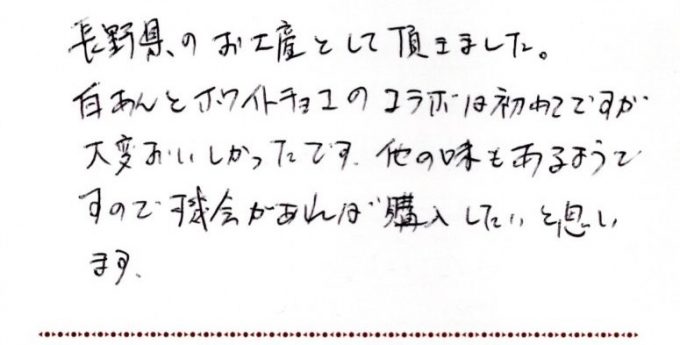 長野県のお土産として頂きました。
白あんとホワイトチョコのコラボは初めてですが
大変おいしかったです。他の味もあるようで
すので機会があれば購入したいと思い
ます。